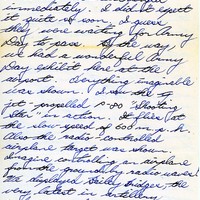 immediately. I didn't expect
it quite so soon, I guess
they were waiting for Army
Day to pass. By the way,
we had a wonderful Army
Day exhibit here at the
airport. Anything imaginable
was shown. I saw the
jet-propelled P-80 "Shooting
Star" in action. It flies at
the slow speed of 600 m.p.h.
Also the radio-controlled
airplane target was shown.
Imagine controlling an airplane
from the ground by radio waves!
displayed Bailey bridges, the
very latest in artillery